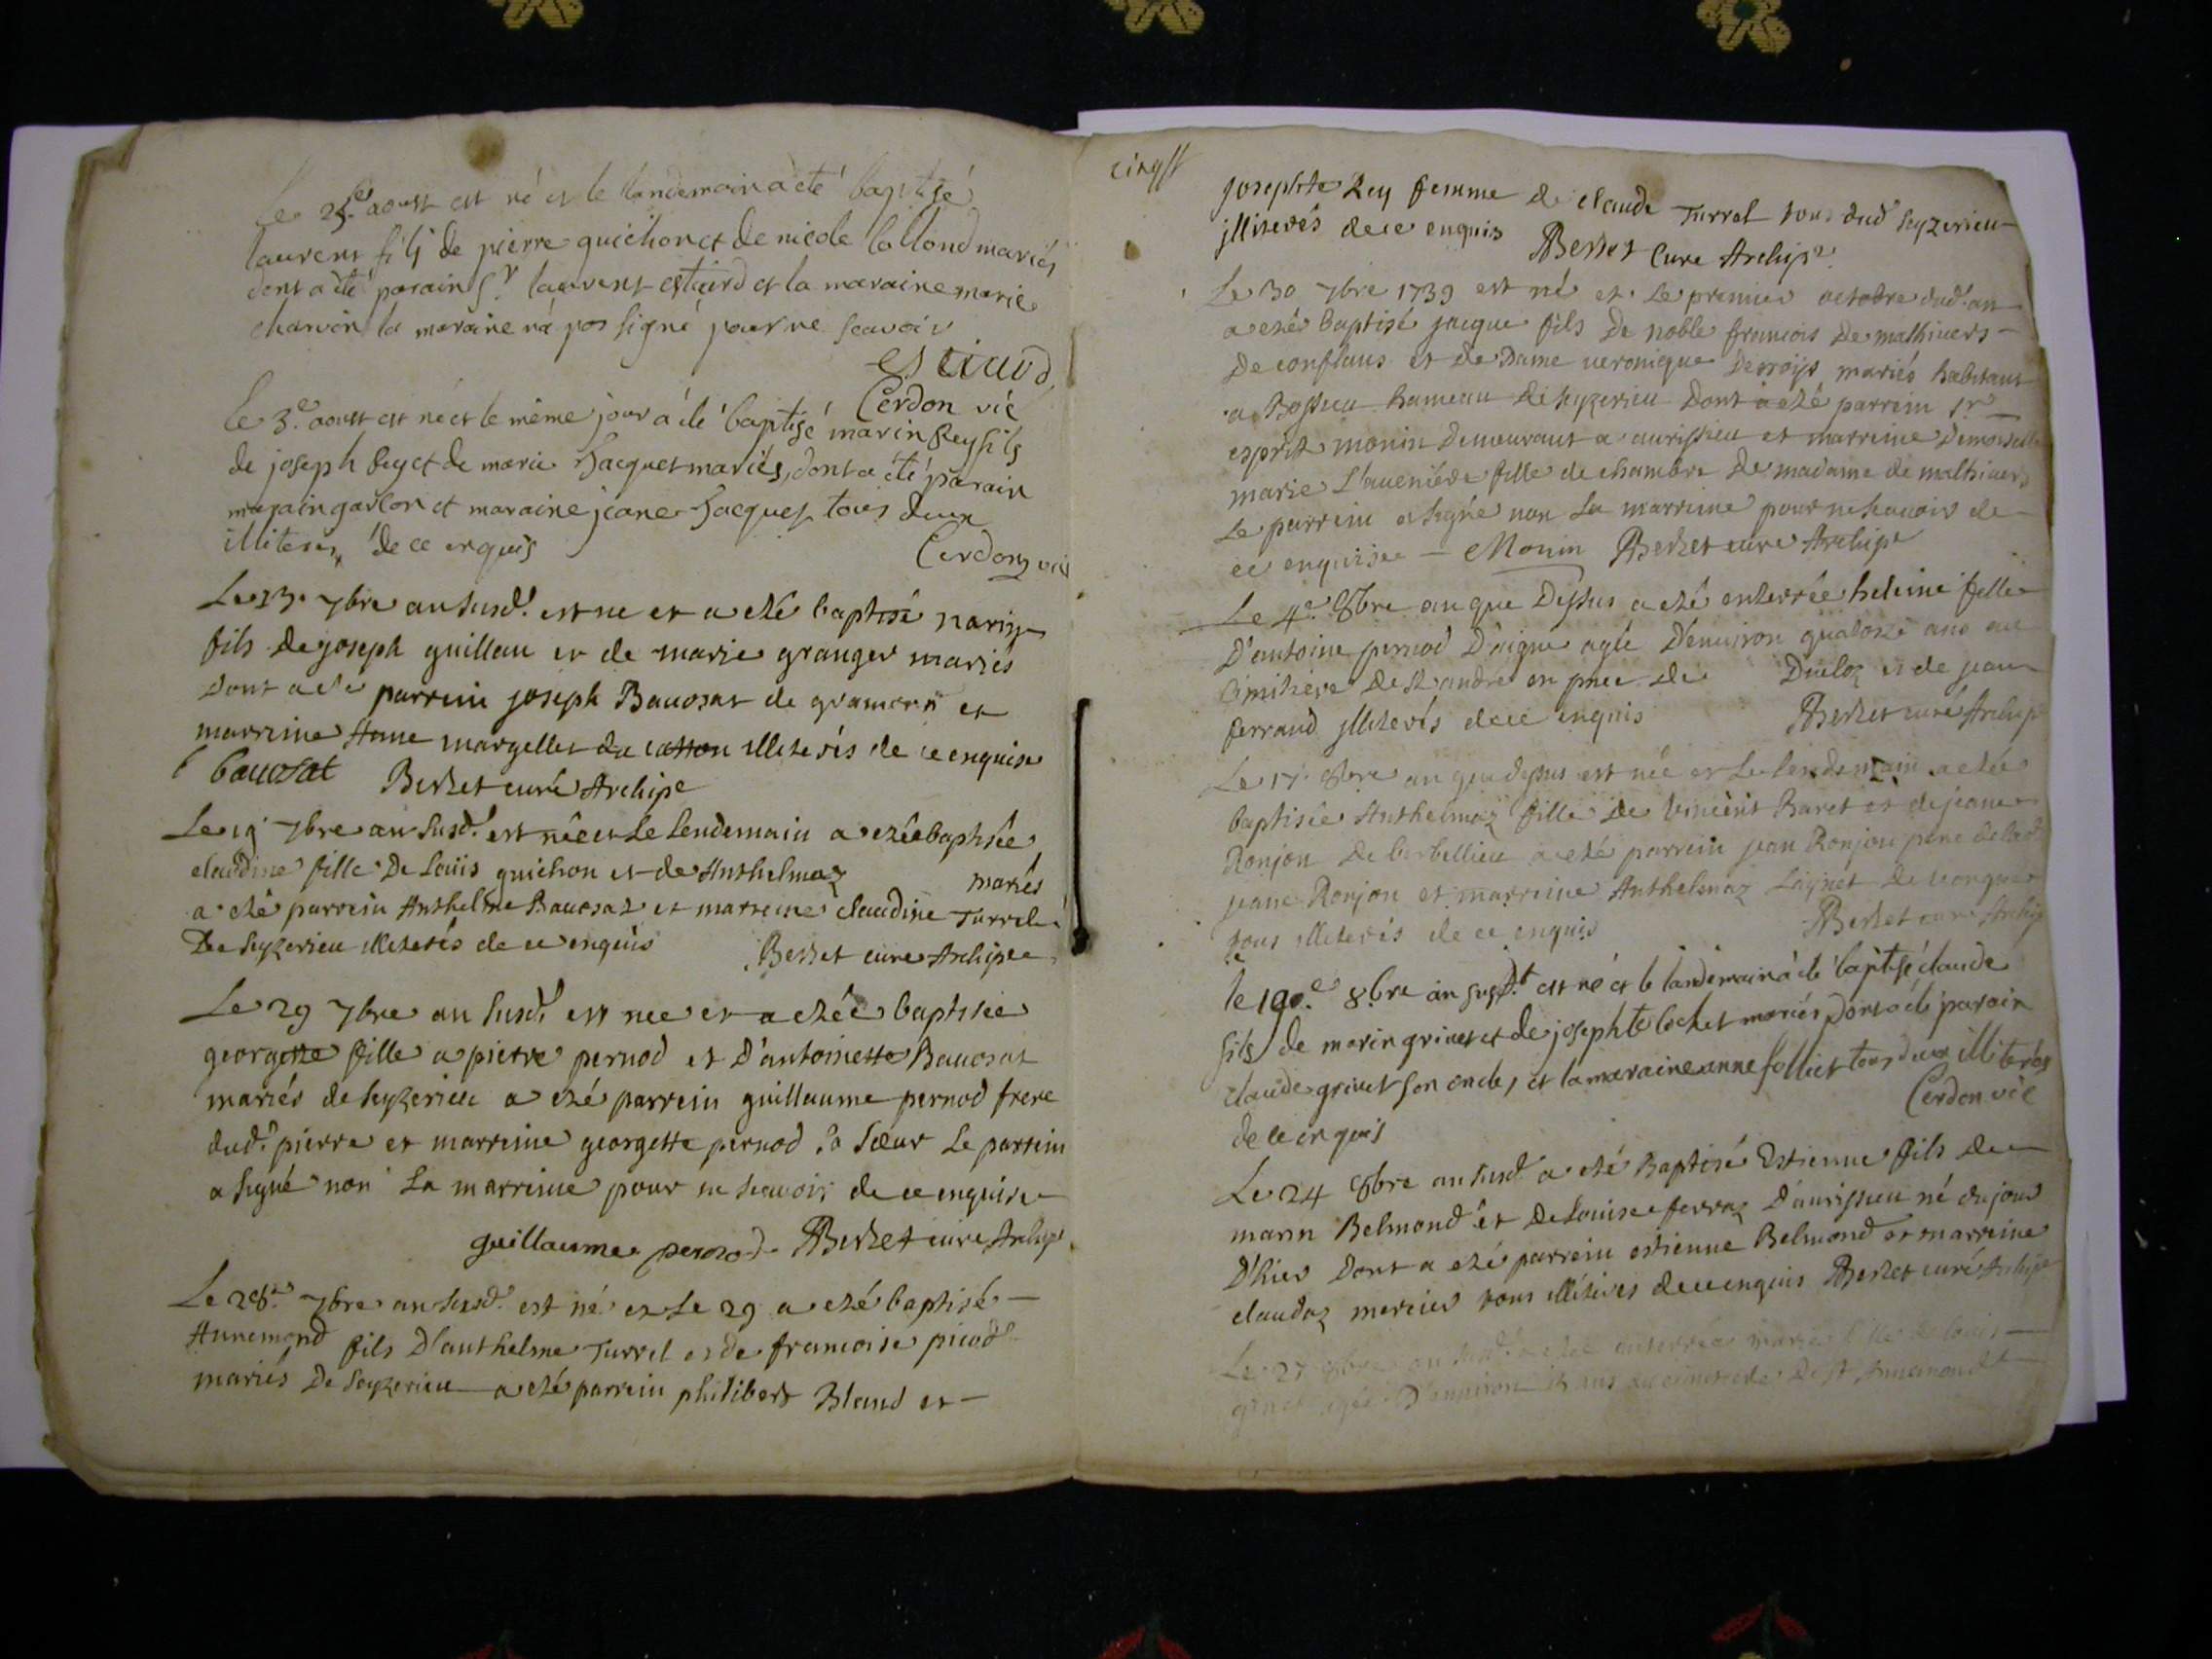 Le 25.e aoust est né et le landemain a été baptisé
laurent fils de pierre guichon et de nicole lallond mariés
dont a été parain Sr. laurent estiurd et la maraine marie
charvin la maraine n'a pas signé pour ne scavoir
Cerdon vic
le 3.e aoust est né et le même jour a été baptisé marin Rey fils
de joseph Rey et de marie Jacquet mariés, dont a été parain
marain garlon et maraine jeane Jacquet tous deux
illiterés de ce enquis
Cerdon vic
Le 23. 7bre an susd.t est ne et a eté baptisé marin
fils de joseph guillau et de marie granger mariés
dont a eté parrein joseph Bauosat de et
marreine Anne margellet du catton illiterés de ce enquise
bauosat Berzet curé Archipe
Le 19 7bre an susd.t est née et Le Lendemain a etée baptisée
claudine fille De Louis guichon et de Anthelmaz mariés
a eté parrein Anthelme Bauosaz et marreine claudine Turrel
De Seyzerieu illiterés de ce enquis Berzet cure Archipe
Le 29 7bre an susd.t est nee et a etée baptisée
georgette fille a pierre pernod et D'antoinette Bauosat
mariés de seyzerieu a eté parrein guillaume pernod frere
dud.t pierre et marreine georgette pernod sa sœur Le parrein
a signé non La marreine pour ne scavoir de ce enquise
guillaume pernod Berzet cure Archip
Le 28.e 7bre an susd.t est né et Le 29 a eté baptisé
Annemond fils D'anthelme Turrel et de francoise picod
mariés De Seyzerieu a eté parrein philibert Bland et
cinq
josephte Rey femme de claude Turrel tous dud seyzerieu
illiterés de ce enquis Berzet Cure Archip.
Le 30 7bre 1739 est né et Le premier octobre dud.t an
a etés baptisé jacque fils De noble francois De mathiuers
De conflans et de Dame ueronique Desroys mariés habitant
a Bossieu hameau de seyzerieu Dont a eté parrein sr
esprit monin Demeurant a aurissieu et marreine Demoiselle
marie L'aueniere fille de chambre de madame de mathiuers
Le parrein a signé non La marreine pour ne scauoir de
ce enquisee Monin Berzet cure Archip
Le 4.e 8bre an que Dessus a eté enterrée heleine fille
D'antoine pernod D'aigne agée D'enuiron quatorze ans au
Cimitiere De St andré en pnce de Ducloz et de jean
ferrand illiterés de ce enquis Berzet curé Archip
Le 17 8bre an que dessus est née et Le lendemain a etée
baptisée Anthelmaz fille De Vincent Baret et de jeane
Ronjon De berbellieu a eté parrein jean Ronjon pere de lad.
jeane Ronjon et marreine Anthelmaz De uongne
tous illiterés de ce enquis Berzet cure Archip
le 190.e 8bre an susd.t est né et le landemain a été baptisé claude
fils de marin griuet et de josephte lochet mariés dont a été parain
claude griuet son oncle, et la maraine anne folliet tous deux illiterés
de ce enquis
Cerdon vic
Le 24 8bre an susd.t a eté Baptisé Estienne fils de
marin Belmond et De Louise ferraz D'aurissieu né du jour
D'hier Dont a eté parrein estienne Belmond et marreine
claudaz mercier tous illiteres de ce enquis Berzet curé Archip
Le 27 8bre an susd.t a etée enterrée marie fille de louis
agée D'enuiron ans au cimetiere De St Annemond